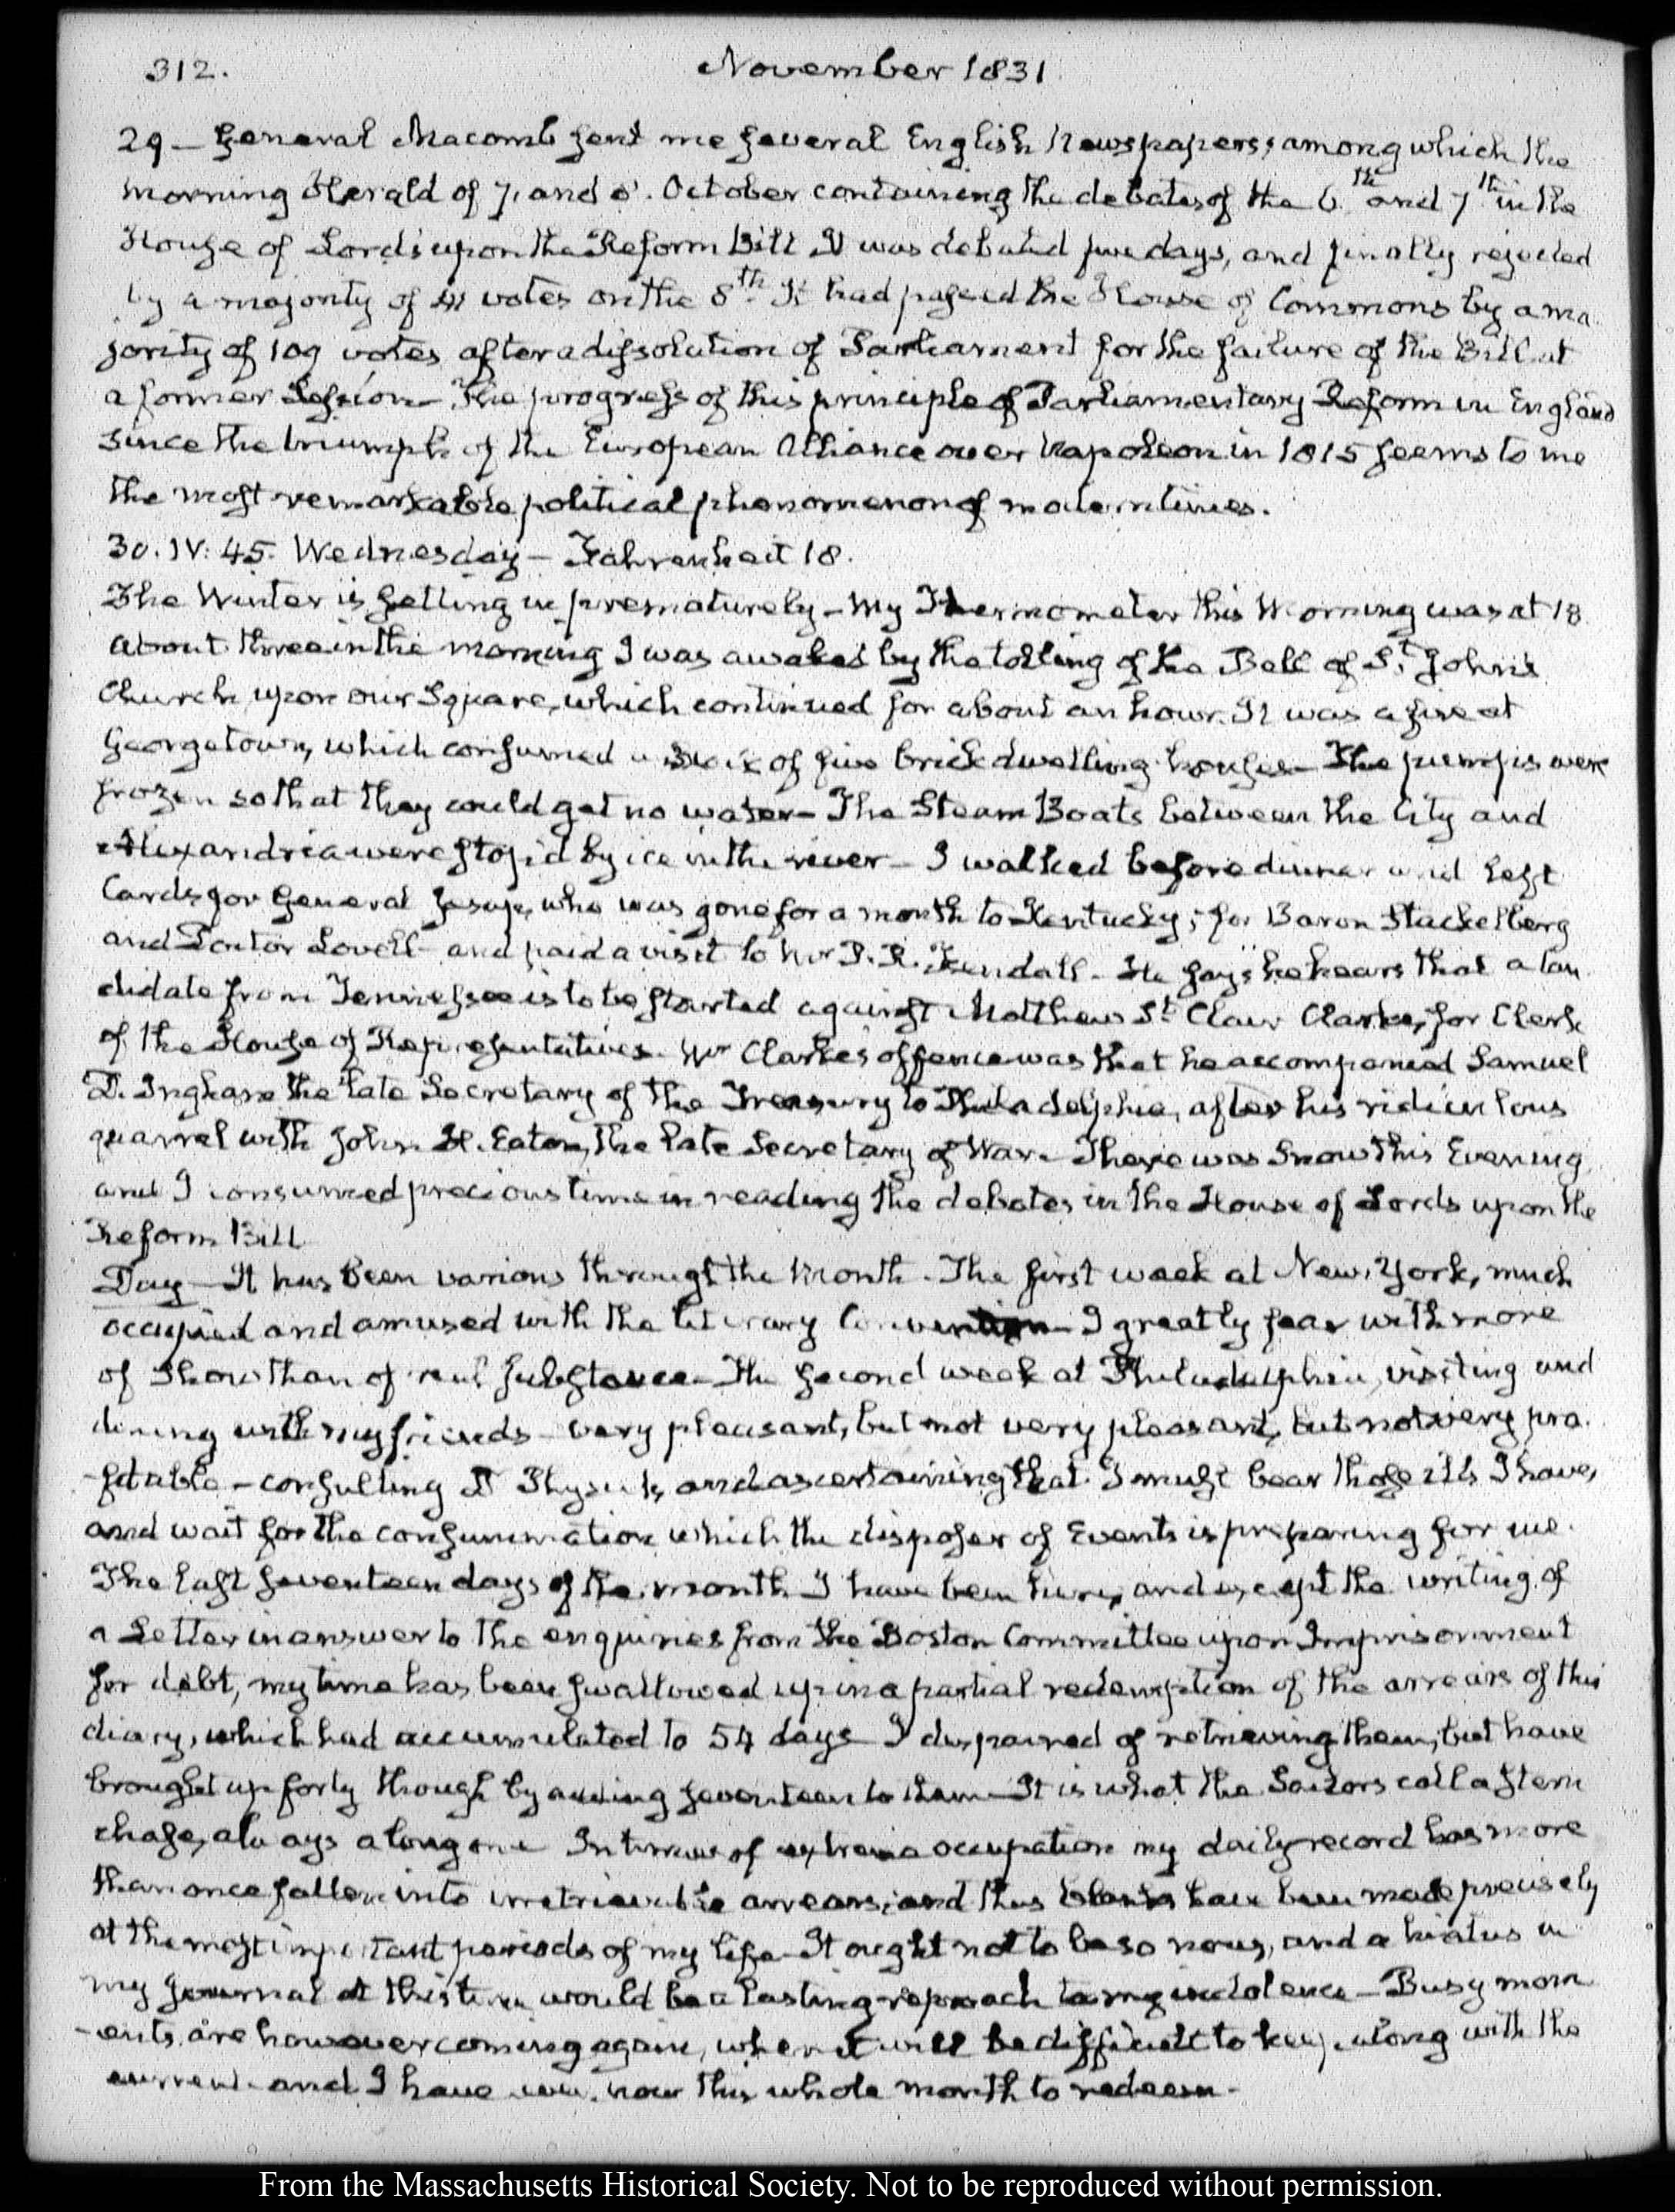 312.
November 1831
29 — General Macomb sent me several English Newspapers; among which the
Morning Herald of 7, and 8. October containing the debates of the 6th and 7th in the
House of Lords upon the Reform Bill It was debated five days, and finally rejected
by a majority of 41 votes on the 8th. It had passed the House of Commons by a ma
jority of 109 votes after a dissolution of Parliament for the failure of the Bill at
a former Session— The progress of this principle of Parliamentary Reform in England
since the triumph of the European Alliance over Napoleon in 1815 seems to me
the most remarkable political phenomenon of modern times.
30. IV: 45. Wednesday — Fahrenheit 18.
The Winter is setting in prematurely — My Thermometer this Morning was at 18
about three in the morning I was awaked by the tolling of the Bell of St. John's
Church, upon our Square, which continued for about an hour. It was a fire at
Georgetown, which consumed a block of five brick dwelling houses— The pumps were
frozen so that they could get no water— The Steam Boats between the City and
Alexandria were stop'd by ice in the river — I walked before dinner and left
Cards for General Jesup, who was gone for a month to Kentucky; for Baron Stackelberg
and Doctor Lovell — and paid a visit to Mr P. R. Fendall — He says he hears that a Can
didate from Tennessee is to be started against Matthew St Clair Clarke, for Clerk
of the House of Representatives. Mr Clarke's offence was that he accompanied Samuel
D. Ingham the late Secretary of the Treasury to Philadelphia, after his ridiculous
quarrel with John H. Eaton, the late Secretary of War. There was Snow this Evening
and I consumed precious time in reading the debates in the House of Lords upon the
Reform Bill
Day — It has been various through the Month. The first week at New-York, much
occupied and amused with the literary Convention— I greatly fear with more
of Show than of real substance— The second week at Philadelphia, visiting and
dining with my friends — very pleasant, but not very pleasant, but not very pro-
-fitable — consulting Dr Physick, and ascertaining that I must bear those ills I have,
and wait for the consummation which the disposer of Events is preparing for me.
The last seventeen days of the month I have been here, and except the writing of
a Letter in answer to the enquiries from the Boston Committee upon Imprisonment
for debt, my time has been swallowed up in a partial redemption of the arrears of this
diary, which had accumulated to 54 days I despaired of retrieving them, but have
brought up forty though by adding seventeen to them— It is what the Sailors call a stern
chase, always a long one In times of extreme occupation my daily record has more
than once fallen into irretrievable arrears; and thus blanks have been made precisely
at the most important periods of my life— It ought not to be so now, and a hiatus in
my journal at this time would be a lasting reproach to my indolence — Busy mom
-ents are however coming again, when it will be difficult to keep along with the
current and I have now this whole month to redeem.
From the Massachusetts Historical Society. Not to be reproduced without permission.